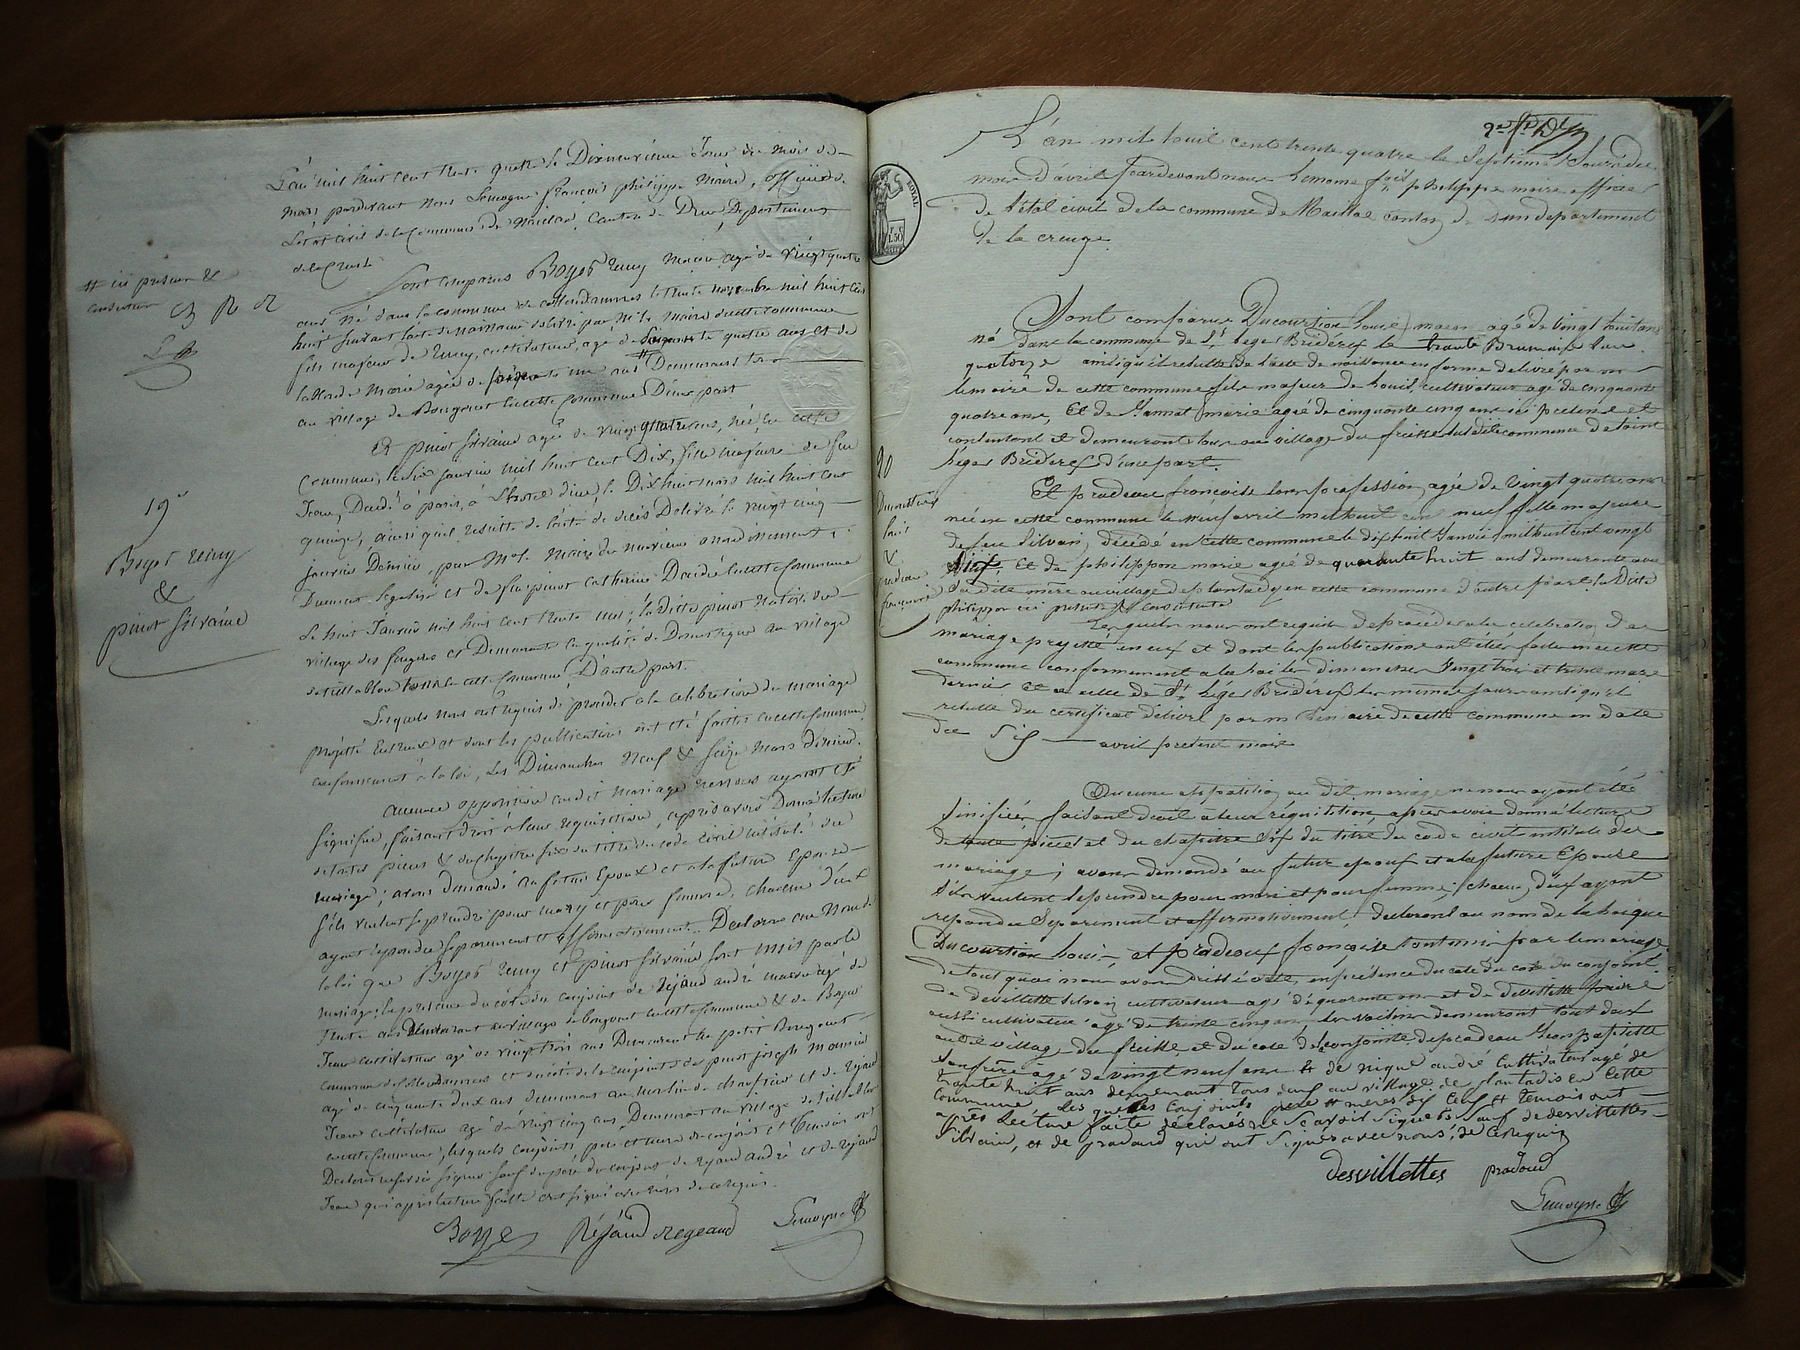 L'an mil huit cent trente quatre le Dixneuvieme Jour du mois de
mars pardevant nous Lemoyne françois philippe Maire, officier de
L'état civil de la Commune de Maillac, Canton de Dun Departement
de la Creuse
Sont comparus Boyer remy Macon agé de vingt quatre
ans, né dans la commune de le trente novembre mil huit cent
huit suivant l'acte de naissance délivré par Mr le Maire de cette commune
fils majeur de remy, cultivateur, agé de soixante quatre ans et de
Marie agée de soixante un ans Demeurants
au village de Bougouet cette Commune D'une part
# ici present &
consentant B R R
Et pinot Silvaine agée de vingt quatre ans, née en cette
Commune, le six janvier mil huit cent Dix, fille majeure de feu
Jean, Décédé à paris, à l'hotel dieu, le Dix huit mars mil huit cent
quinze, ainsi qu'il résulte de l'acte de décès Délivré le vingt cinq
janvier Dernier, par Mr le Maire du neuvieme arrondissement
Dument legalisé et de feu pinot Catherine Décédée en cette Commune
Le huit Janvier mil huit cent trente un; la ditte pinot native du
village des fougeres et Demeurant en qualité de Domestique au village
de cette Commune D'autre part.
19e
Boyer remy
&
pinot Silvaine
Lesquels nous ont requis de proceder à la celebration du mariage
projetté Entreux et dont les publications ont été faittes en cette Commune
conformement à la loi, les Dimanches Neuf & Seize Mars Dernier.
Aucune opposition audit Mariage ne nous ayant été
signifiée, faisant droit à leur requisition, après avoir Donné lecture
de toutes pieces & du Chapitre six du titre du code civil intitulé du
mariage; avons demandé au futur Epoux et à la future Epouse
s'ils veulent se prendre pour mary et pour femme, chacun d'eux
ayant repondu separement et affirmativement Declarons au Nom de
la loi que Boyer remy et pinot Silvaine sont unis par le
mariage; En presence du coté du conjoint de réjaud andré macon agé de
trente ans Demeurant au village de bougouet en cette Commune & de Boyer
Jean cultivateur agé de vingt trois ans Demeurant au petit Bougouet
commune de et du coté de la conjointe de pinot joseph
agé de cinquante deux ans Demeurant au moulin de et de réjaud
Jean cultivateur agé de vingt cinq ans, Demeurant au village de
en cette Commune, lesquels conjoints, pere et mere du conjoint et temoins ont
Declaré ne savoir signer sauf le pere du conjoint de réjaud andré et de réjaud
Jean qui après lecture faitte ont signé avec nous de ce requis.
Boyer Réjaud regeaud Lemoyne
L'an mil huit cent trente quatre le Septième Jour du
mois d'avril pardevant nous Lemoine fois philippe maire officier
de l'état civil de la commune de Maillac canton de Dun departement
de la creuze
Sont comparus Ducourtiou Louis macon agé de vingt huit ans
né dans la commune de St leger Bridereix le trente Brumaire l'an
quatorze ainsi qu'il resulte de l'acte de naissance en forme delivré par mr
le maire de cette commune fils majeur de Louis cultivateur agé de cinquante
quatre ans, Et de Jannot marie agée de cinquante cinq ans ici present et
consentant et demeurant tous au village du frisse susditte commune de saint
leger Bridereix d'une part.
Et pradeau françoise sans profession, agée de vingt quatre ans
née en cette commune le neuf avril mil huit cent neuf fille majeure
de feu Silvain, décédé en cette commune le dix huit Janvier mil huit cent vingt
neuf, Et de philippon marie agée de quarante huit ans demeurante avec
sa dite mère au village de plantadis en cette commune d'autre part la ditte
philippon ici presente & consentante
20
Ducourtiou
Louis
&
pradeau
françoise
Lesquels nous ont requis de proceder a la celebration du
mariage projetté entr'eux et dont les publications ont étés faite en cette
commune conformement a la loi les dimanches vingt trois et trente mars
dernier Et a celle de St léger Bridereix les mêmes jours ainsi qu'il
resulte du certificat délivré par mr le maire de cette commune en date
du six avril present mois
Aucune opposition au dit mariage ne nous ayant été
sinifiée faisant droit à leur réquisition après avoir donné lecture
de toute pieces et du chapitre six du titre du code civil intitulé du
mariage; avons demandé au futur epoux et a la future Epouse
s'ils veulent se prendre pour mari et pour femme; chacun d'eux ayant
repondu séparement et affirmativement declarons au nom de la loi que
Ducourtiou Louis, et pradeaux françoise sont unis par le mariage
de tout quoi nous avons dressé acte, en presence du coté du conjoint
de devillette Silvain cultivateur agé de quarante ans et de devillette
aussi cultivateur agé de trente cinq ans, les voisins demeurant tout deux
audit village du frisse et du coté de la conjointe de pradeau Jean
son frère agé de vingt neuf ans & de nigue andré cultivateur agé de
trente huit ans demeurant tous deux au village de plantadis en cette
commune. Les quelles conjoints père & mères des époux & temoins ont
après lecture faite déclarés ne savoir signer sauf de desvillettes
Silvain, et de pradaud qui ont signés avec nous, de ce requis
desvillettes pradaud
Lemoyne